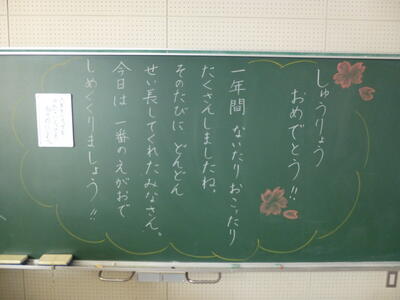 しゅうりょう
おめでとう!!
一年間 ないたり おこったり
たくさんしましたね。
そのたびに どんどん
せい長してくれたみなさん。
今日は 一番のえがおで
しめくくりましょう!!